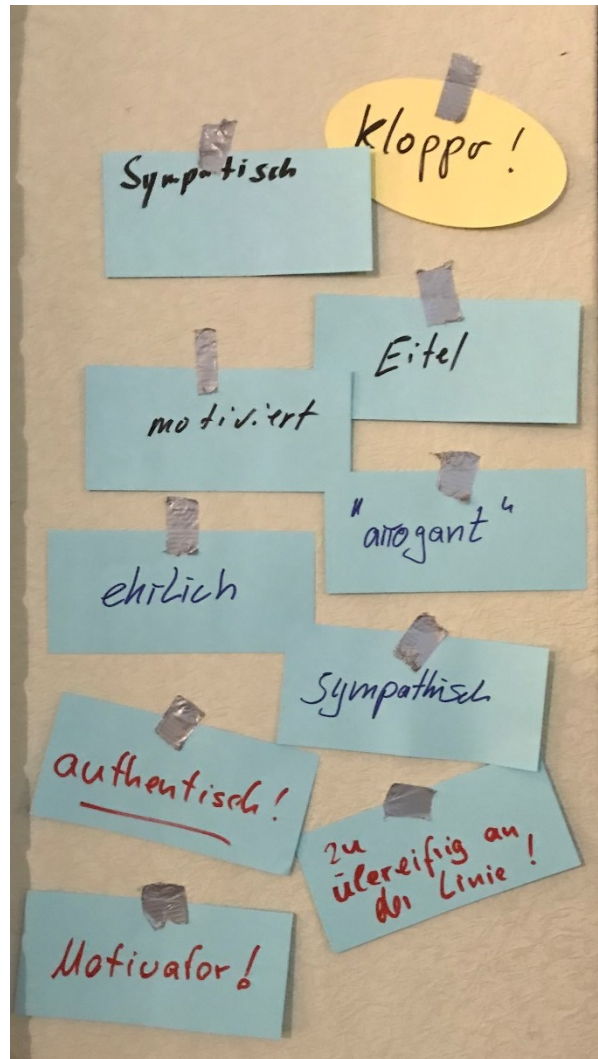 Kloppo!
Sympatisch
Eitel
motiviert
"arrogant"
ehrlich
Sympathisch
authentisch!
zu
übereifrig an
der Linie!
Motivator!